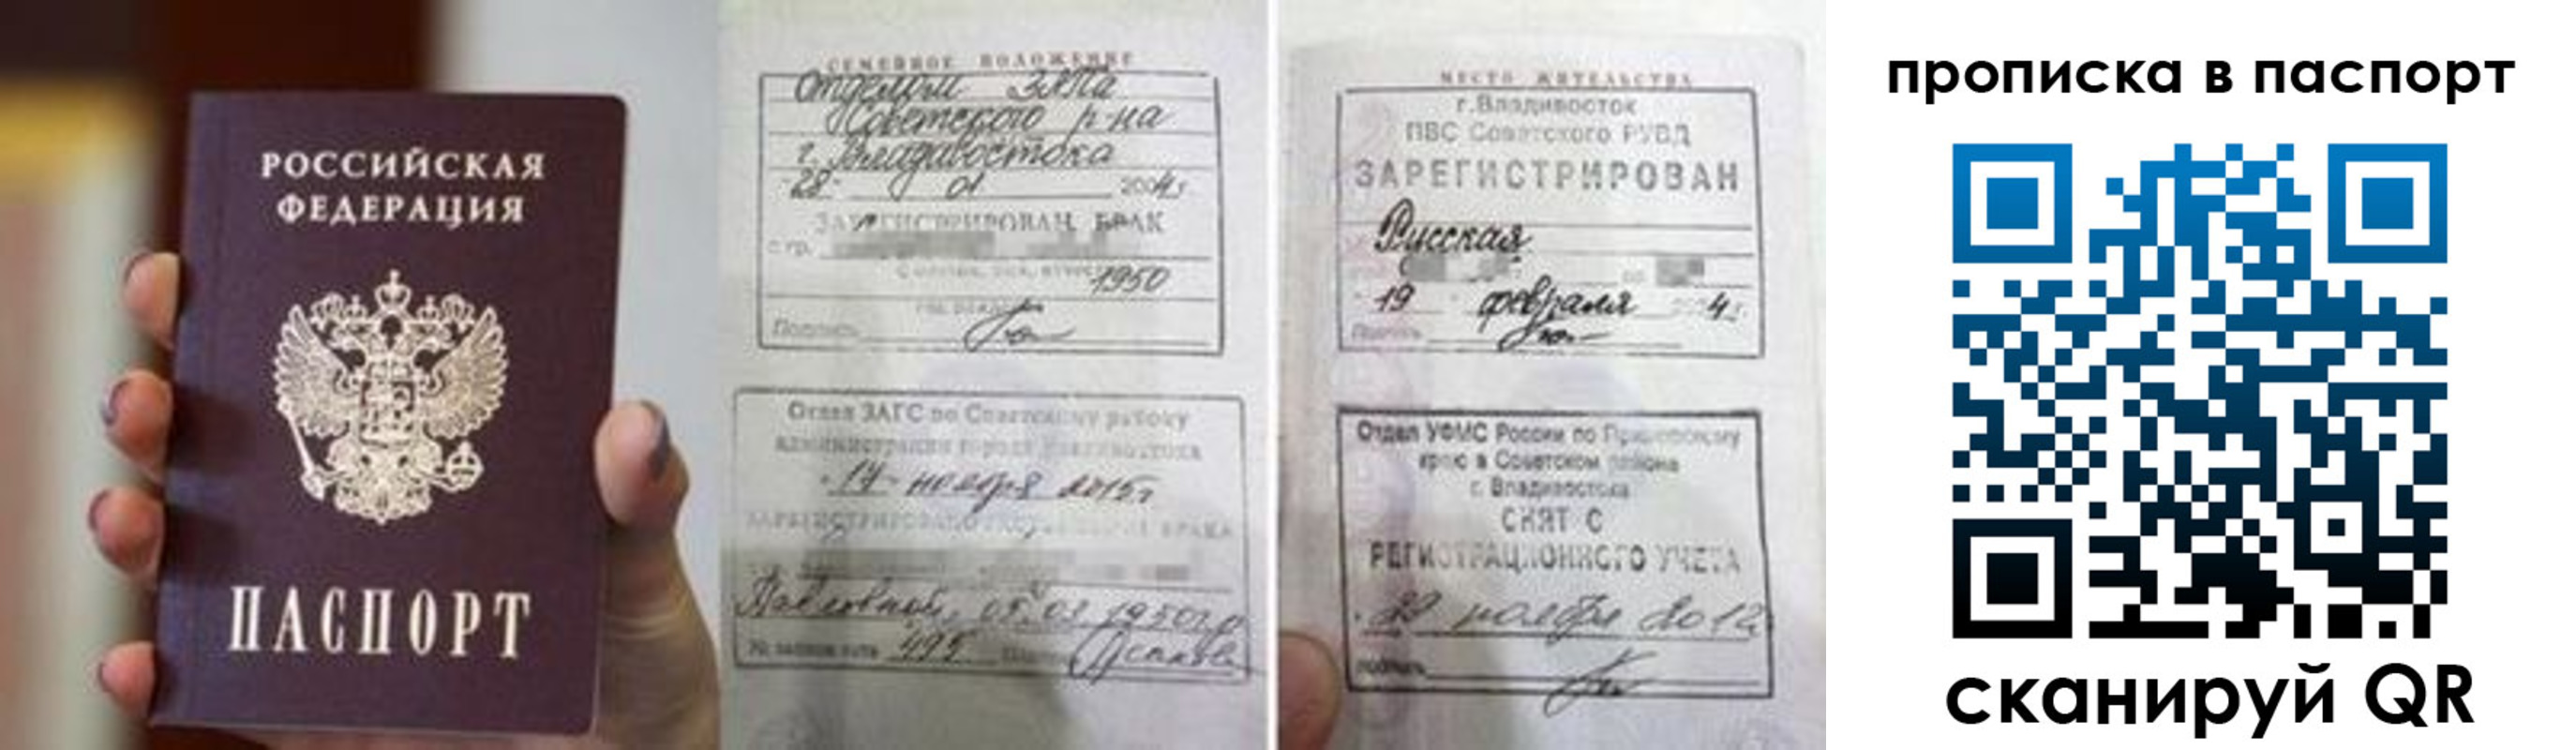 РОССИЙСКАЯ
ФЕДЕРАЦИЯ
ПАСПОРТ
СЕМЕЙНОЕ ПОЛОЖЕНИЕ
Отделом ЗАГСа
Советского р-на
г. Владивостока
"28" 01 2004 г.
ЗАРЕГИСТРИРОВАН БРАК
с гр.
1950
Подпись
Отдел ЗАГС по Советскому району
администрации города Владивостока
"17" ноября 2015 г.
Павловной, 05.03.1950 г.р
№ записи акта 495
МЕСТО ЖИТЕЛЬСТВА
г.Владивосток
ПВС Советского РУВД
ЗАРЕГИСТРИРОВАН
Русская
19 февраля 4 г.
Подпись
Отдел УФМС России по Приморскому
краю в Советском районе
г. Владивостока
СНЯТ С
РЕГИСТРАЦИОННОГО УЧЕТА
ноября 2012
подпись
прописка в паспорт
сканируй QR